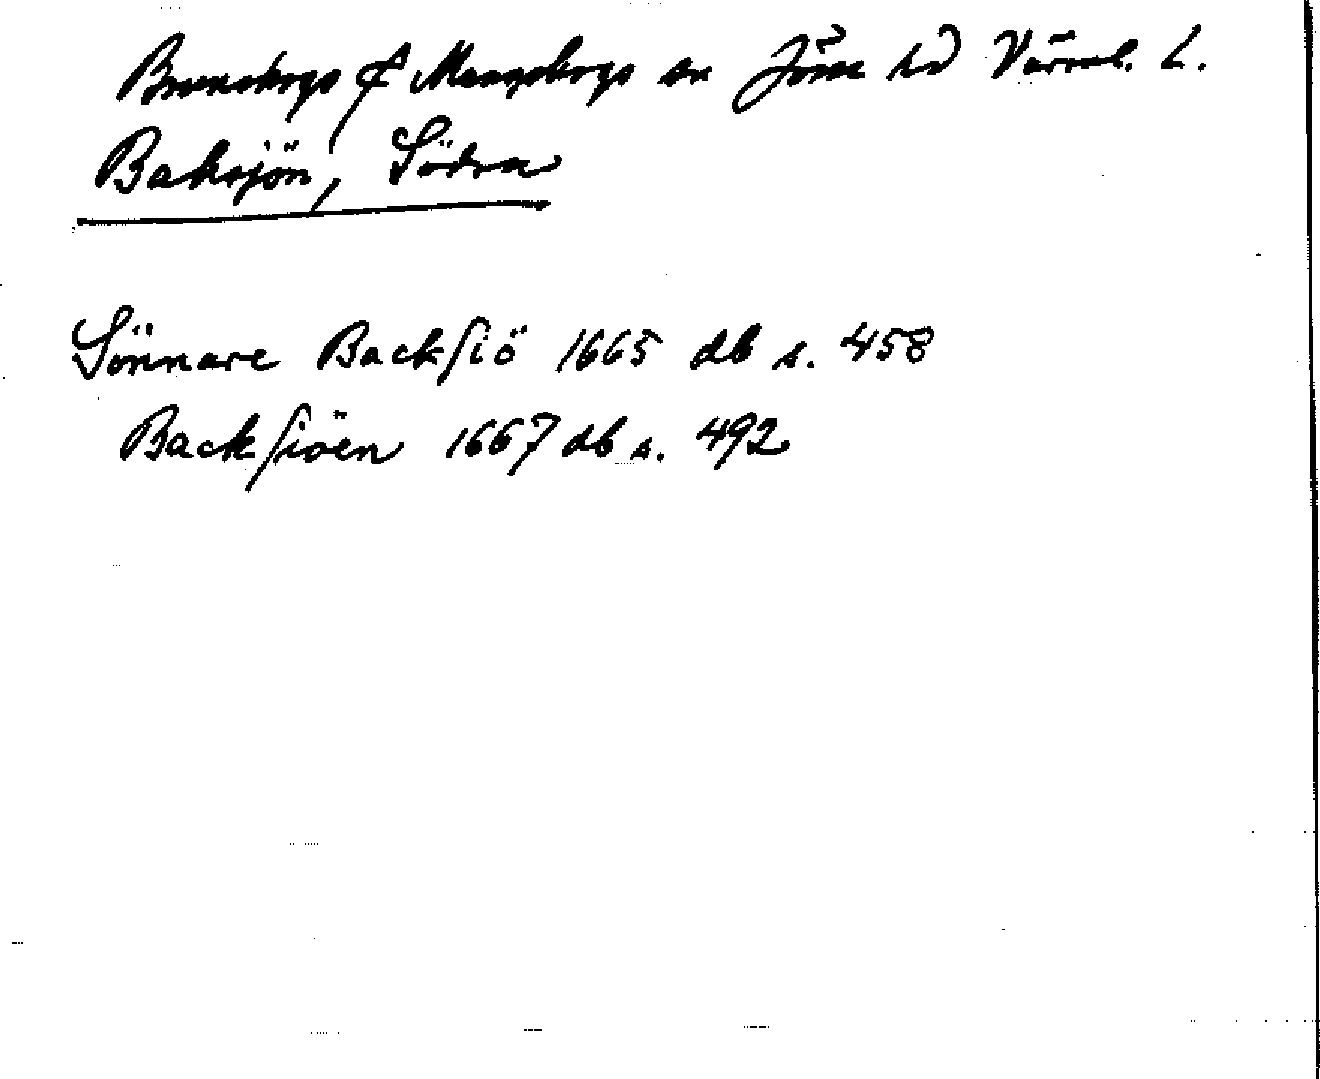 Brunsbergs f Mangskogs sn Jösse hd Värml. L.
Baksjön, Södra
Sönnare Backsiö 1665 db s. 458
Backsiöen 1667 db s. 492